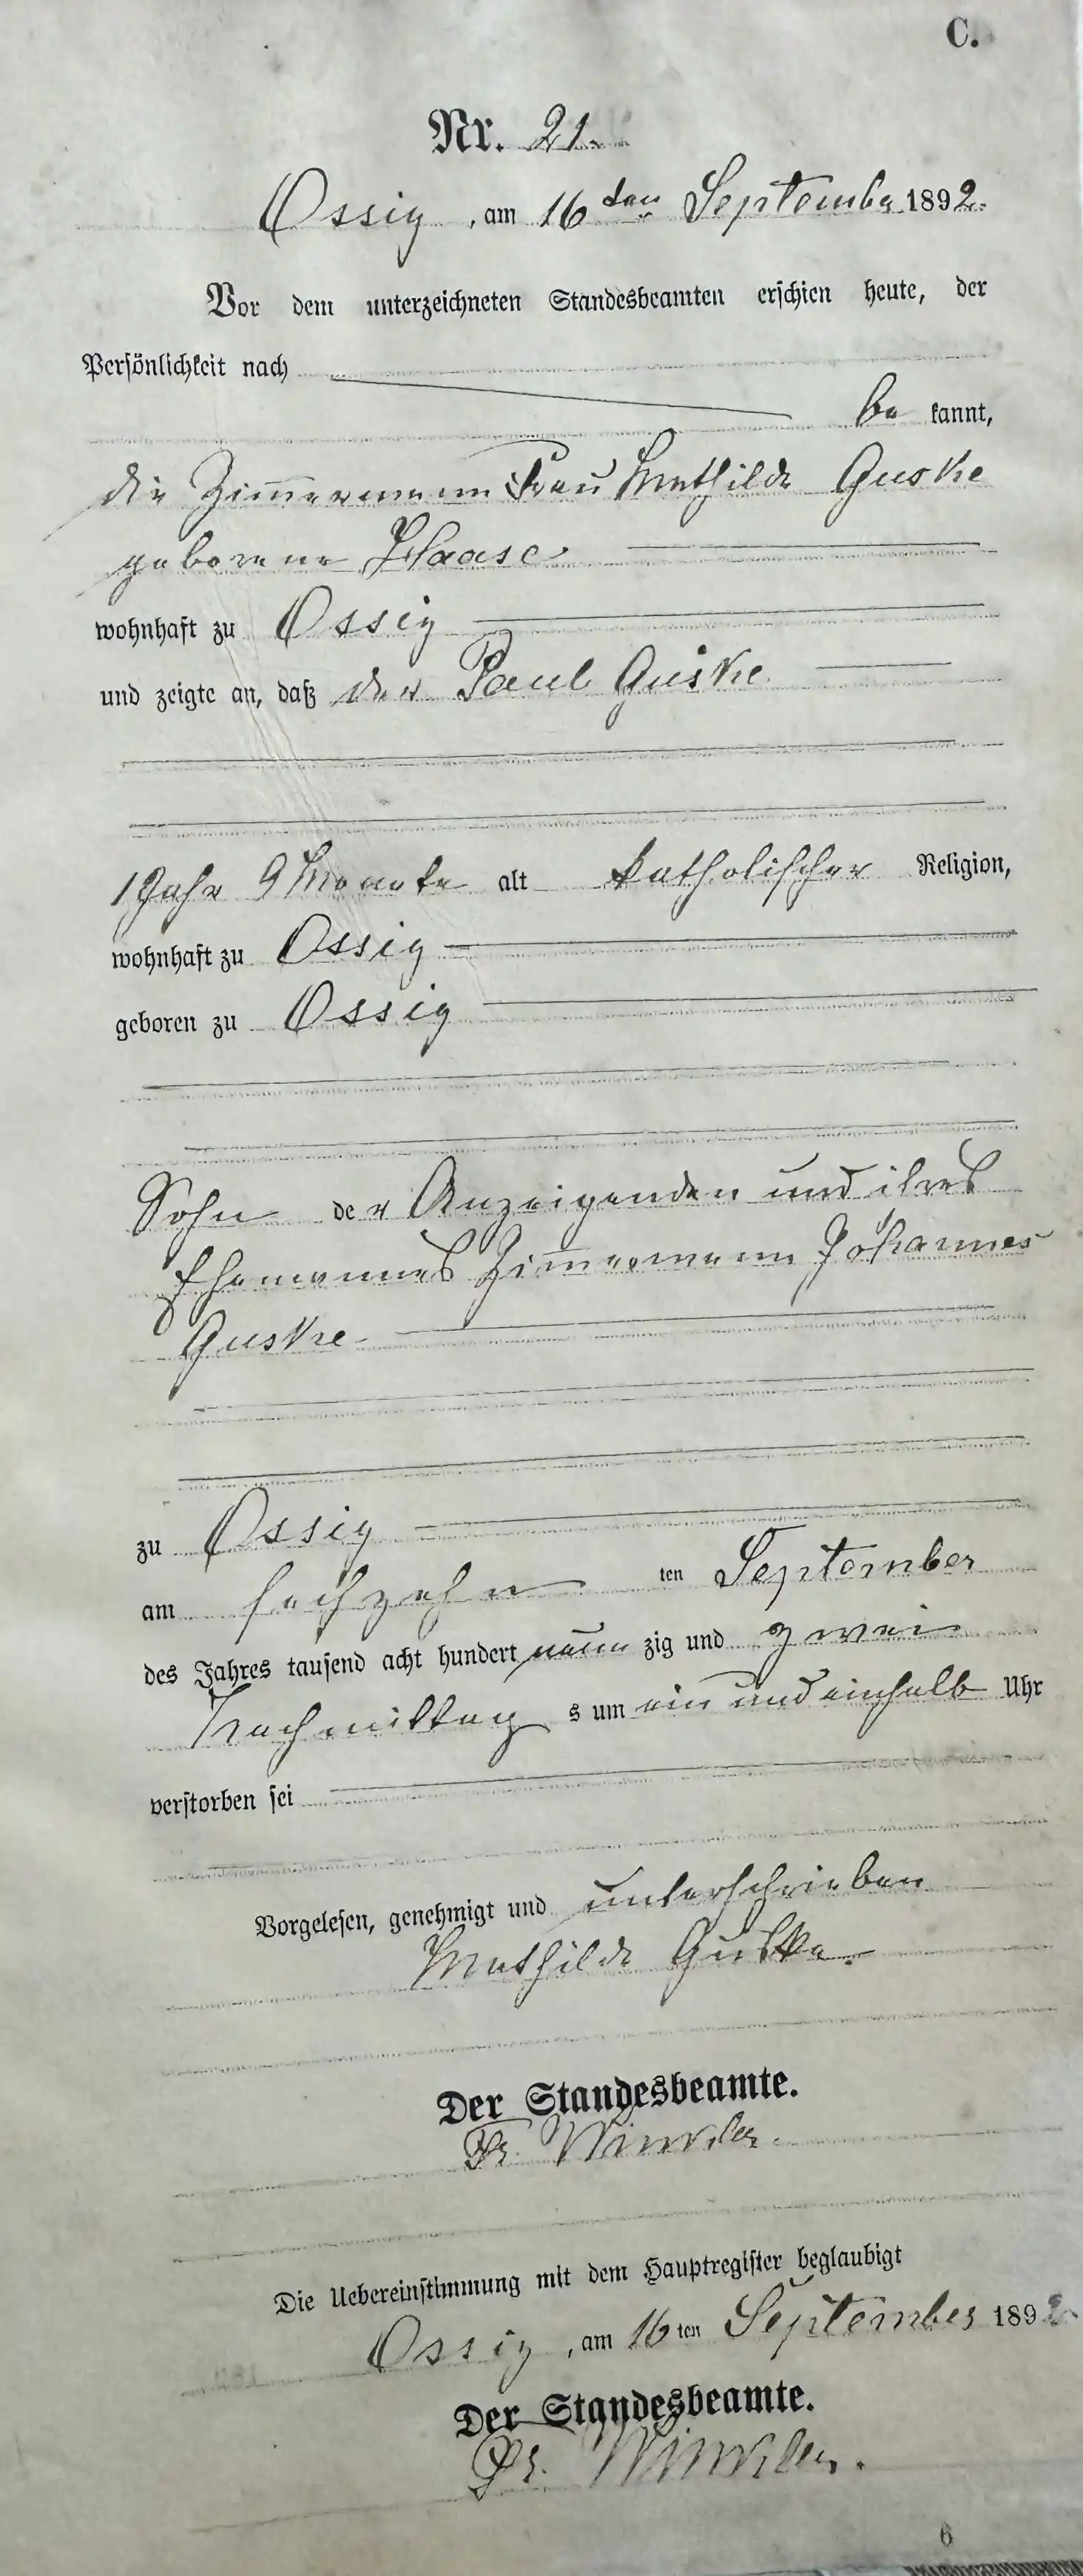 C.
Nr. 21.
Ossig, am 16ten September 1892.
Vor dem unterzeichneten Standesbeamten erschien heute, der
Persönlichkeit nach
be kannt,
die Zimmermann Frau Mathilde Guske
geborene Haase
wohnhaft zu Ossig
und zeigte an, daß der Paul Guske
1 Jahr 9 Monate alt katholischer Religion,
wohnhaft zu Ossig
geboren zu Ossig
Sohn der Anzeigenden und ihres
Ehemannes Zimmermann Johannes
Guske
zu Ossig
am sechzehn ten September
des Jahres tausend acht hundert neun zig und zwei
Nachmittag s um ein und einhalb Uhr
verstorben sei
Vorgelesen, genehmigt und unterschrieben
Mathilde Guske.
Der Standesbeamte.
Fr. Winkler.
Die Uebereinstimmung mit dem Hauptregister beglaubigt
Ossig, am 16ten September 1892
Der Standesbeamte.
Fr. Winkler.
6